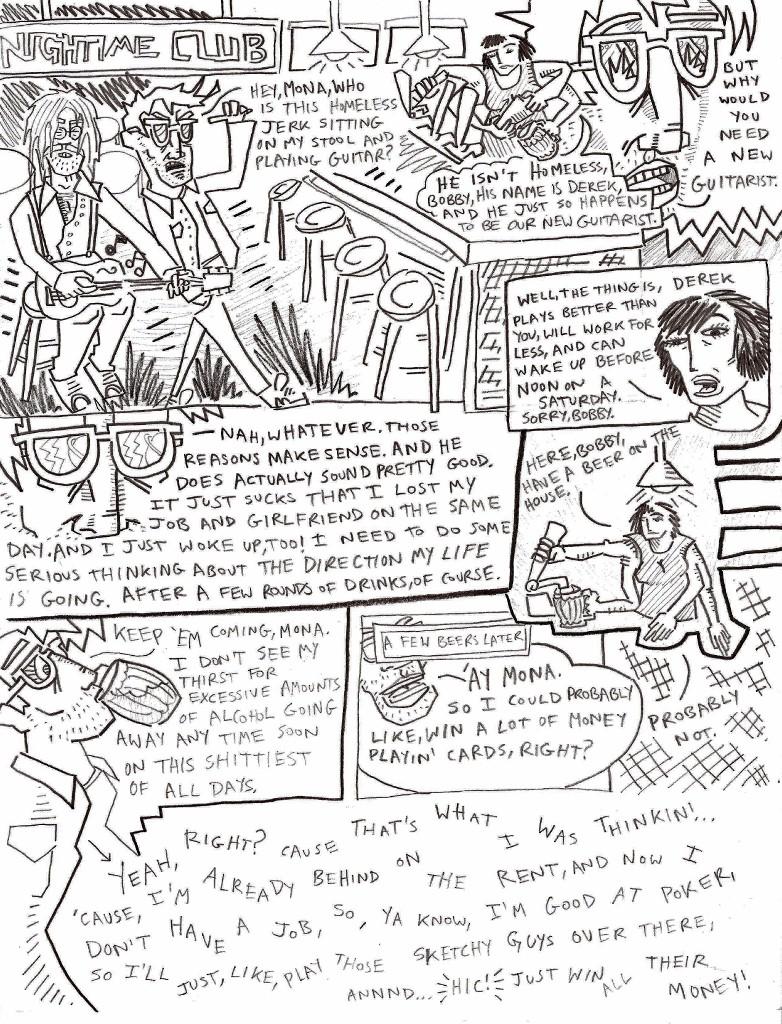 NIGHTIME CLUB
HEY, MONA, WHO
IS THIS HOMELESS
JERK SITTING
ON MY STOOL AND
PLAYING GUITAR?
HE ISN'T HOMELESS,
BOBBY, HIS NAME IS DEREK,
AND HE JUST SO HAPPENS
TO BE OUR NEW GUITARIST.
BUT
WHY
WOULD
YOU
NEED
A NEW
GUITARIST.
WELL, THE THING IS, DEREK
PLAYS BETTER THAN
YOU, WILL WORK FOR
LESS, AND CAN
WAKE UP BEFORE
NOON ON A
SATURDAY.
SORRY, BOBBY.
NAH, WHATEVER. THOSE
REASONS MAKE SENSE. AND HE
DOES ACTUALLY SOUND PRETTY GOOD.
IT JUST SUCKS THAT I LOST MY
JOB AND GIRLFRIEND ON THE SAME
DAY. AND I JUST WOKE UP, TOO! I NEED TO DO SOME
SERIOUS THINKING ABOUT THE DIRECTION MY LIFE
IS GOING. AFTER A FEW ROUNDS OF DRINKS, OF COURSE.
HERE, BOBBY,
HAVE A BEER ON THE
HOUSE.
KEEP 'EM COMING, MONA.
I DON'T SEE MY
THIRST FOR
EXCESSIVE AMOUNTS
OF ALCOHOL GOING
AWAY ANY TIME SOON
ON THIS SHITTIEST
OF ALL DAYS.
A FEW BEERS LATER
'AY MONA.
SO I COULD PROBABLY
LIKE, WIN A LOT OF MONEY
PLAYIN' CARDS, RIGHT?
PROBABLY
NOT.
YEAH, RIGHT? CAUSE THAT'S WHAT I WAS THINKIN'...
'CAUSE, I'M ALREADY BEHIND ON THE RENT, AND NOW I
DON'T HAVE A JOB, SO, YA KNOW, I'M GOOD AT POKER,
SO I'LL JUST, LIKE, PLAY THOSE SKETCHY GUYS OVER THERE,
ANNND... HIC! JUST WIN ALL THEIR
MONEY!